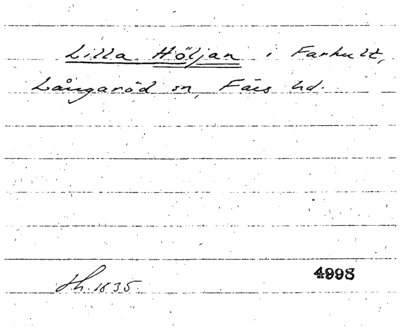 Lilla Höljan i Farhult,
Långaröd sn, Färs hd.
Jh. 1835
4998